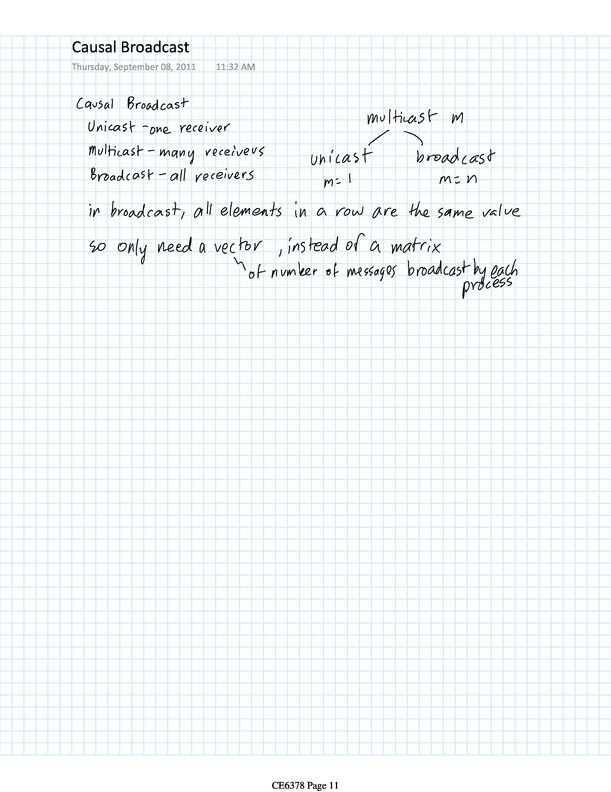 Causal Broadcast
Thursday, September 08, 2011 11:32 AM
Causal Broadcast
Unicast - one receiver
Multicast - many receivers
Broadcast - all receivers
multicast m
unicast broadcast
m=1 m=n
in broadcast, all elements in a row are the same value
so only need a vector, instead of a matrix
of number of messages broadcast by each
process
CE6378 Page 11